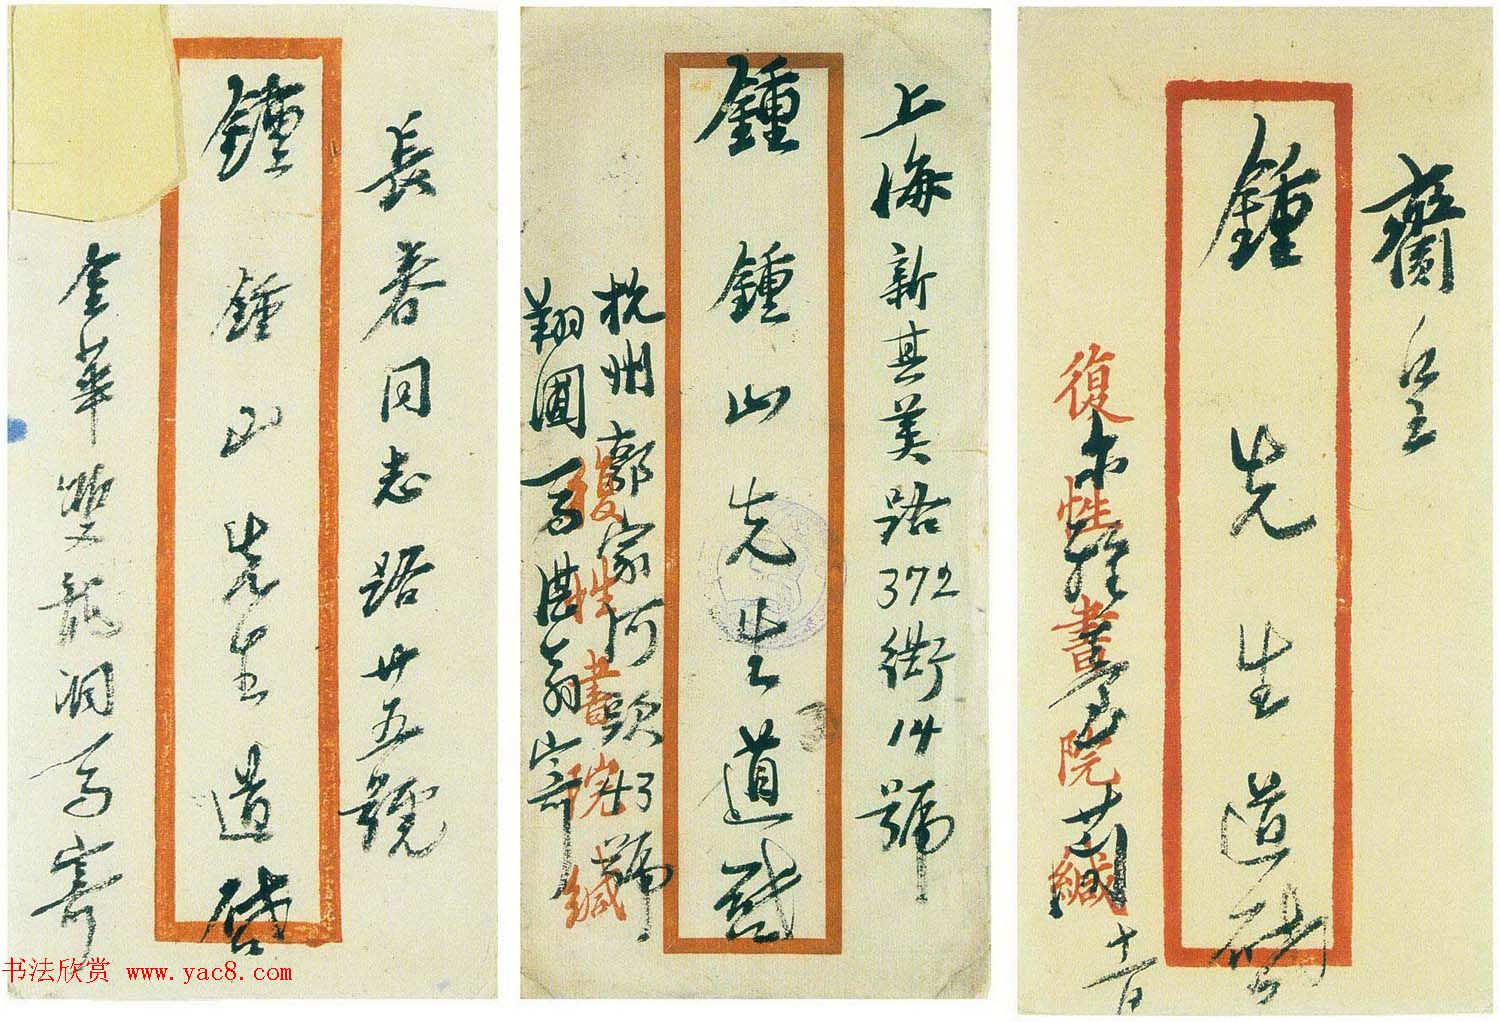 長春同志路廿五號
鍾鍾山先生道啓
金華雙龍洞馬寄
上海新其美路372衖14號
鍾鍾山先生道啓
杭州郭家河頭43號
翔圃馬湛翁寄
復性書院緘
齎呈
鍾先生道啓
復性書院緘
十一日
书法欣赏 www.yac8.com